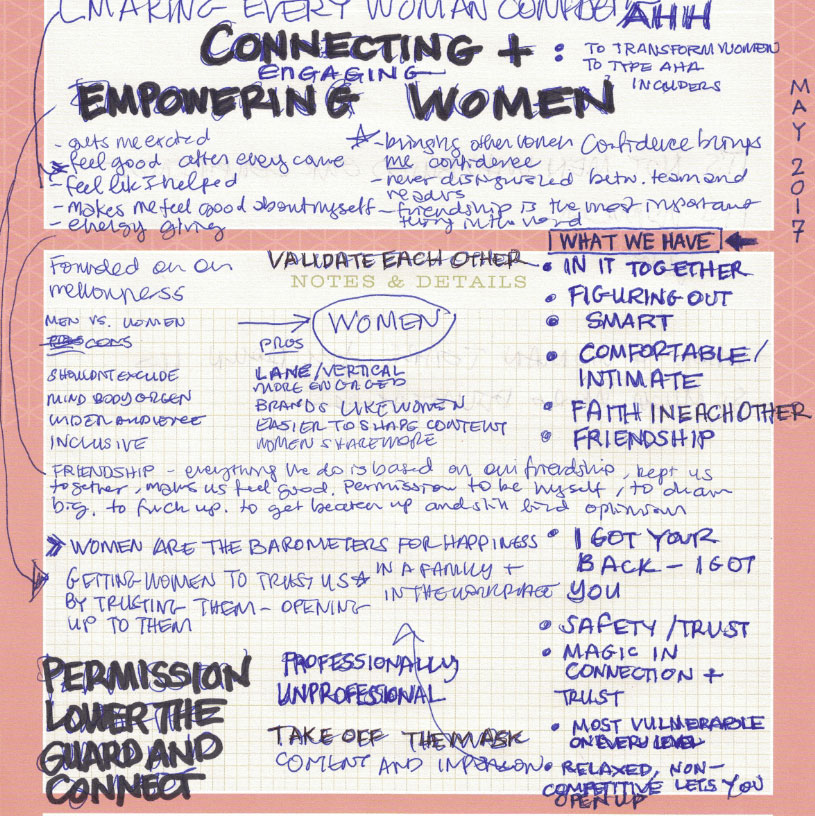 MAKING EVERY WOMAN
AHH
CONNECTING + :
ENGAGING
EMPOWERING WOMEN
TO TRANSFORM WOMEN
TO TYPE AHA
INCLUDERS
MAY 2017
- gets me excited
feel good after every
- feel like I helped
- makes me feel good about myself
- energy giving
- bringing other women confidence brings
me confidence
- never distinguished betw. team and
readers
- friendship is the most important
thing in the word
WHAT WE HAVE
• IN IT TOGETHER
• FIGURING OUT
• SMART
• COMFORTABLE/
INTIMATE
• FAITH IN EACH OTHER
• FRIENDSHIP
• I GOT YOUR
BACK - I GOT
YOU
• SAFETY / TRUST
• MAGIC IN
CONNECTION +
TRUST
• MOST VULNERABLE
ON EVERY LEVEL
• RELAXED, NON-
COMPETITIVE LETS YOU
OPEN UP
Founded on an
VALIDATE EACH OTHER
NOTES & DETAILS
MEN VS. WOMEN
WOMEN
CONS
PROS
SHOULDN'T EXCLUDE
MIND BODY
WIDEN AUDIENCE
INCLUSIVE
LANE/VERTICAL
MORE ENGAGED
BRANDS LIKE WOMEN
EASIER TO SHAPE CONTENT
WOMEN SHARE MORE
FRIENDSHIP - everything we do is based on our friendship, kept us
together, makes us feel good. Permission to be myself, to dream
big. to fuck up. to get beaten up and still bird optimism
» WOMEN ARE THE BAROMETERS FOR HAPPINESS
IN A FAMILY +
IN THE WORKPLACE
GETTING WOMEN TO TRUST US
BY TRUSTING THEM - OPENING
UP TO THEM
PERMISSION
LOWER THE
GUARD AND
CONNECT
PROFESSIONALLY
UNPROFESSIONAL
TAKE OFF THE MASK
COMENT AND INPERSON